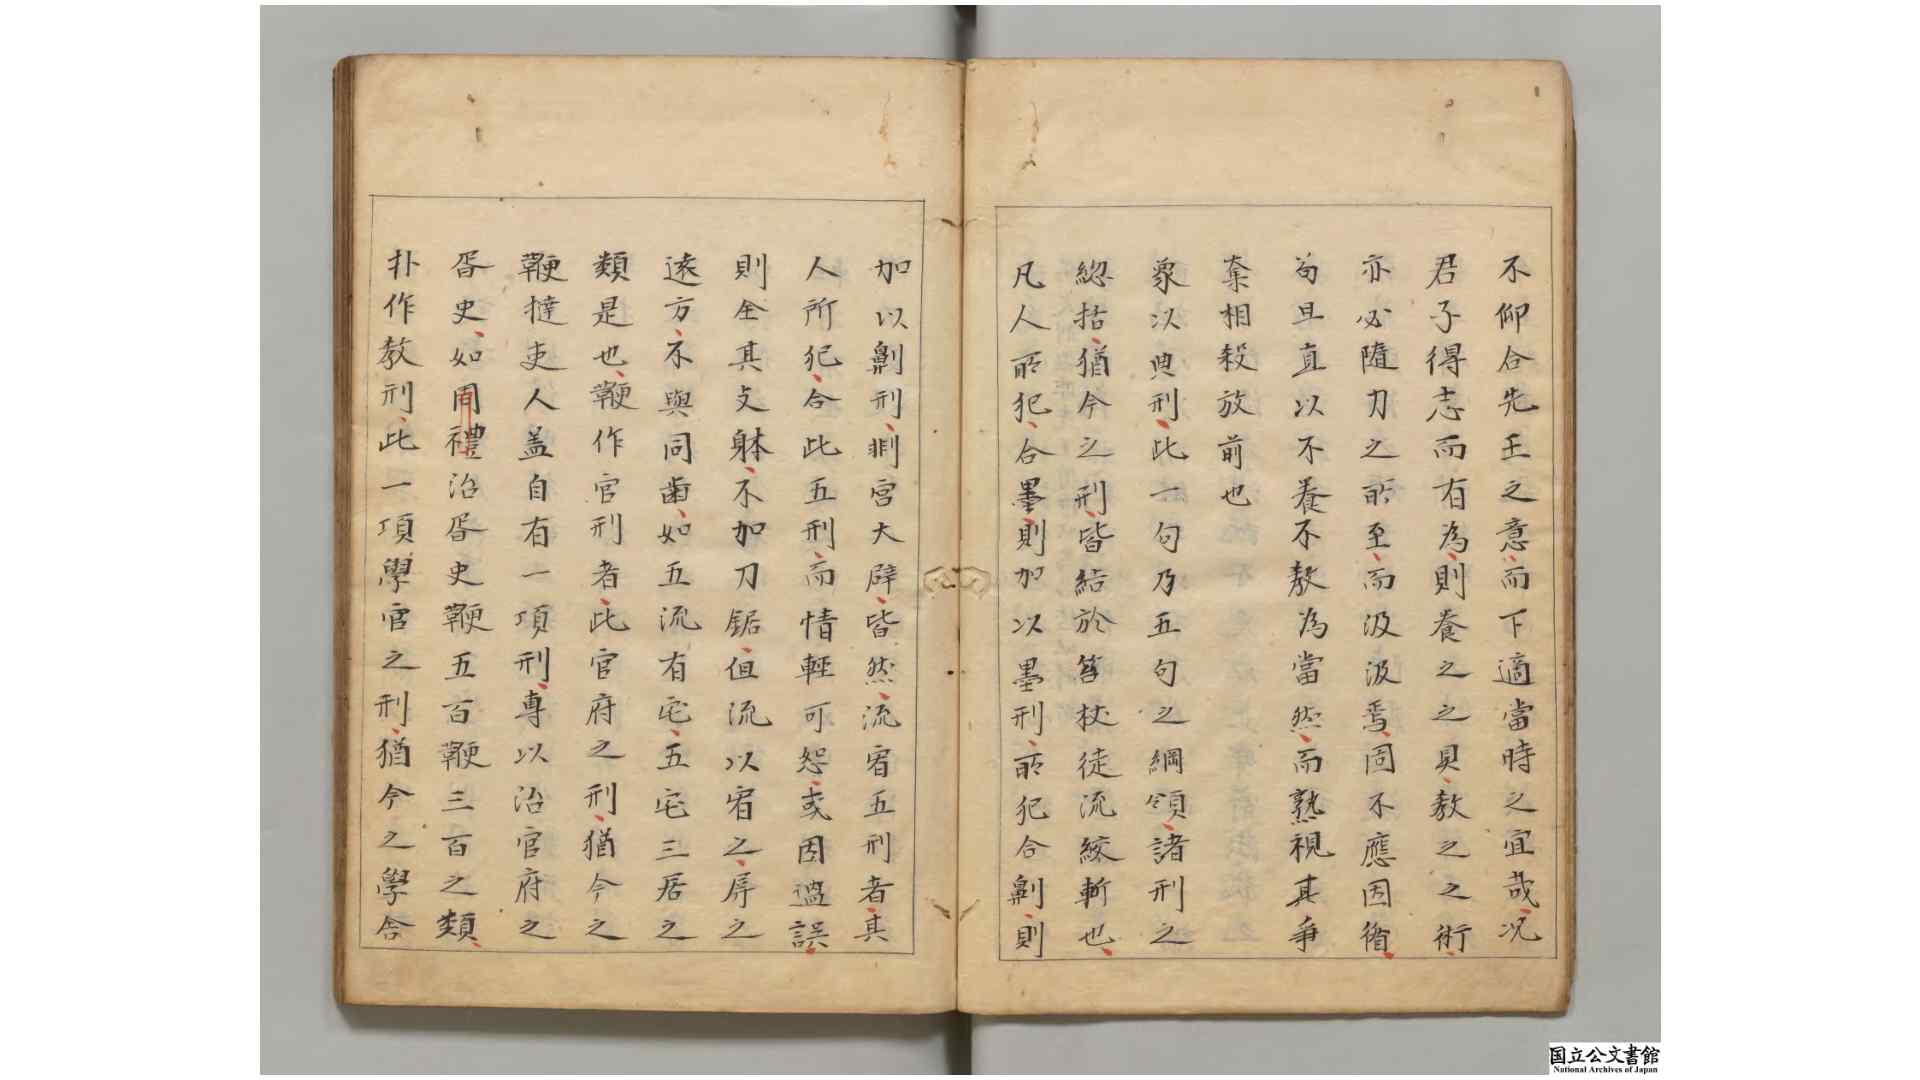 不仰合先王之意而下適當時之宜哉况
君子得志而有為則養之之具教之之術
亦必隨力之所至而汲汲焉固不應因循
苟且直以不養不教為當然而熟視其爭
奪相殺放前也
象以典刑此一句乃五句之綱領諸刑之
總括猶今之刑皆結於笞杖徒流絞斬也
凡人所犯合墨則加以墨刑所犯合劓則
加以劓刑剕宮大辟皆然流宥五刑者其
人所犯合此五刑而情輕可恕或因過誤
則全其支躰不加刀鋸但流以宥之屏之
遠方不與同齒如五流有宅五宅三居之
類是也鞭作官刑者此官府之刑猶今之
鞭撻吏人盖自有一項刑專以治官府之
胥史如周禮治胥史鞭五百鞭三百之類
扑作教刑此一項學官之刑猶今之學舍
国立公文書館
National Archives of Japan